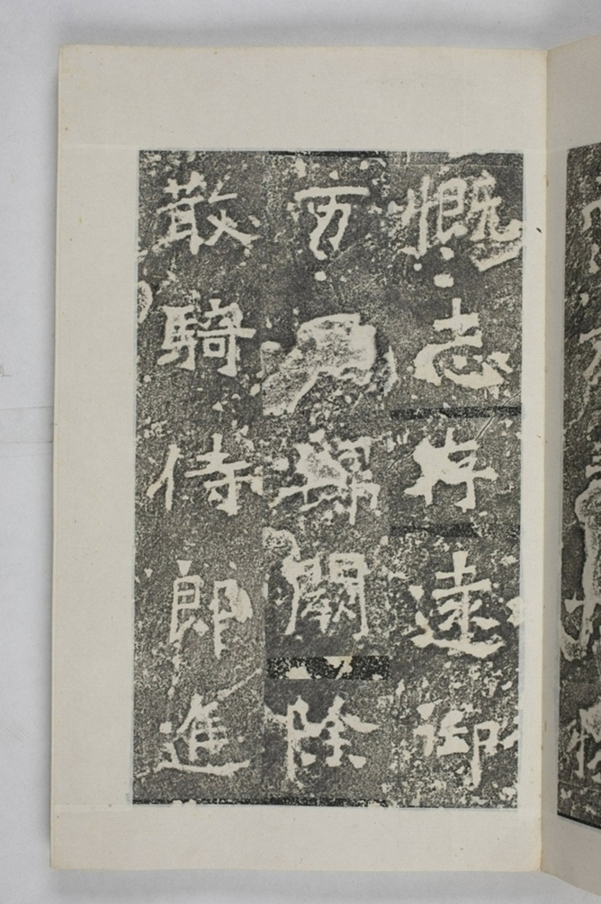 慨志存遠御
万乃歸闕除
散騎侍郎進